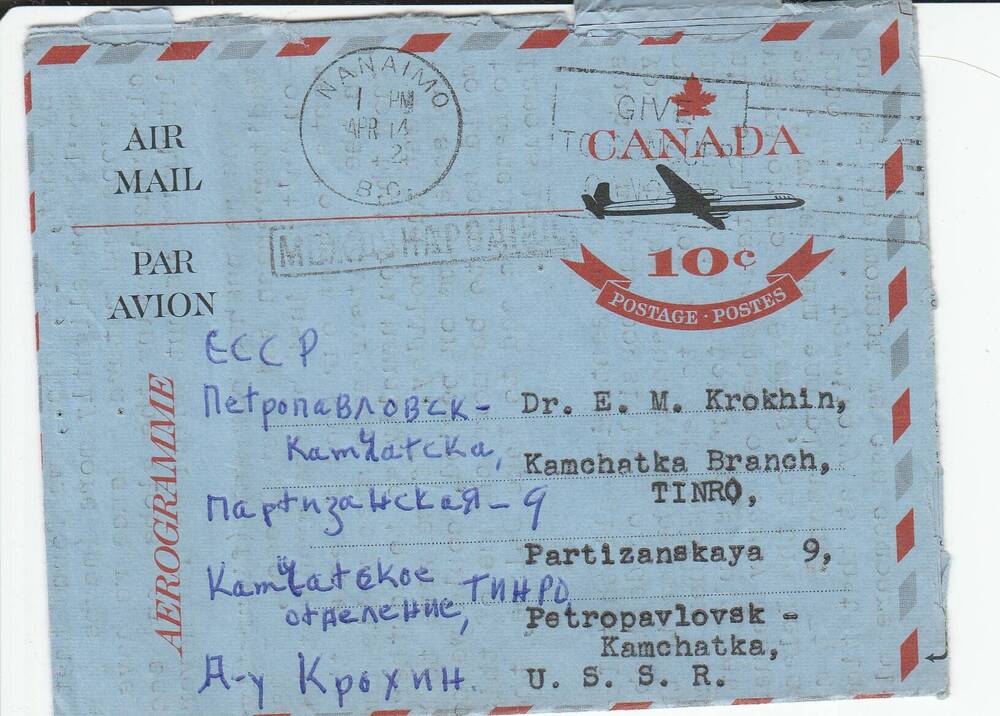 AIR
MAIL
PAR
AVION
AEROGRAMME
NANAIMO
1 PM
APR 14
2
B.C.
GIVE
TO
CANADA
10¢
POSTAGE · POSTES
МЕЖДУНАРОДНОЕ
ЕССР
Петропавловск-
Камчатска,
Партизанская-9
Камчатское
отделение, ТИНРО
Д-у Крохин.
Dr. E. M. Krokhin,
Kamchatka Branch,
TINRO,
Partizanskaya 9,
Petropavlovsk -
Kamchatka,
U. S. S. R.